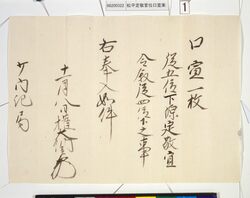 00200322 松平定敬官位口宣案
1
口宣一枚
従五位下源定敬宜
令叙従四位下之事
右奉入如件
十一月八日権大納言
少内記局